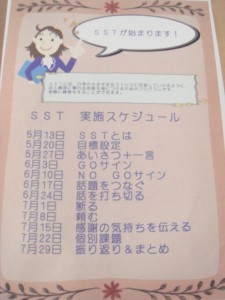 SSTが始まります！
SST 実施スケジュール
5月13日 SSTとは
5月20日 目標設定
5月27日 あいさつ＋一言
6月3日 GOサイン
6月10日 NO GOサイン
6月17日 話題をつなぐ
6月24日 話を打ち切る
7月1日 断る
7月8日 頼む
7月15日 感謝の気持ちを伝える
7月22日 個別課題
7月29日 振り返り＆まとめ